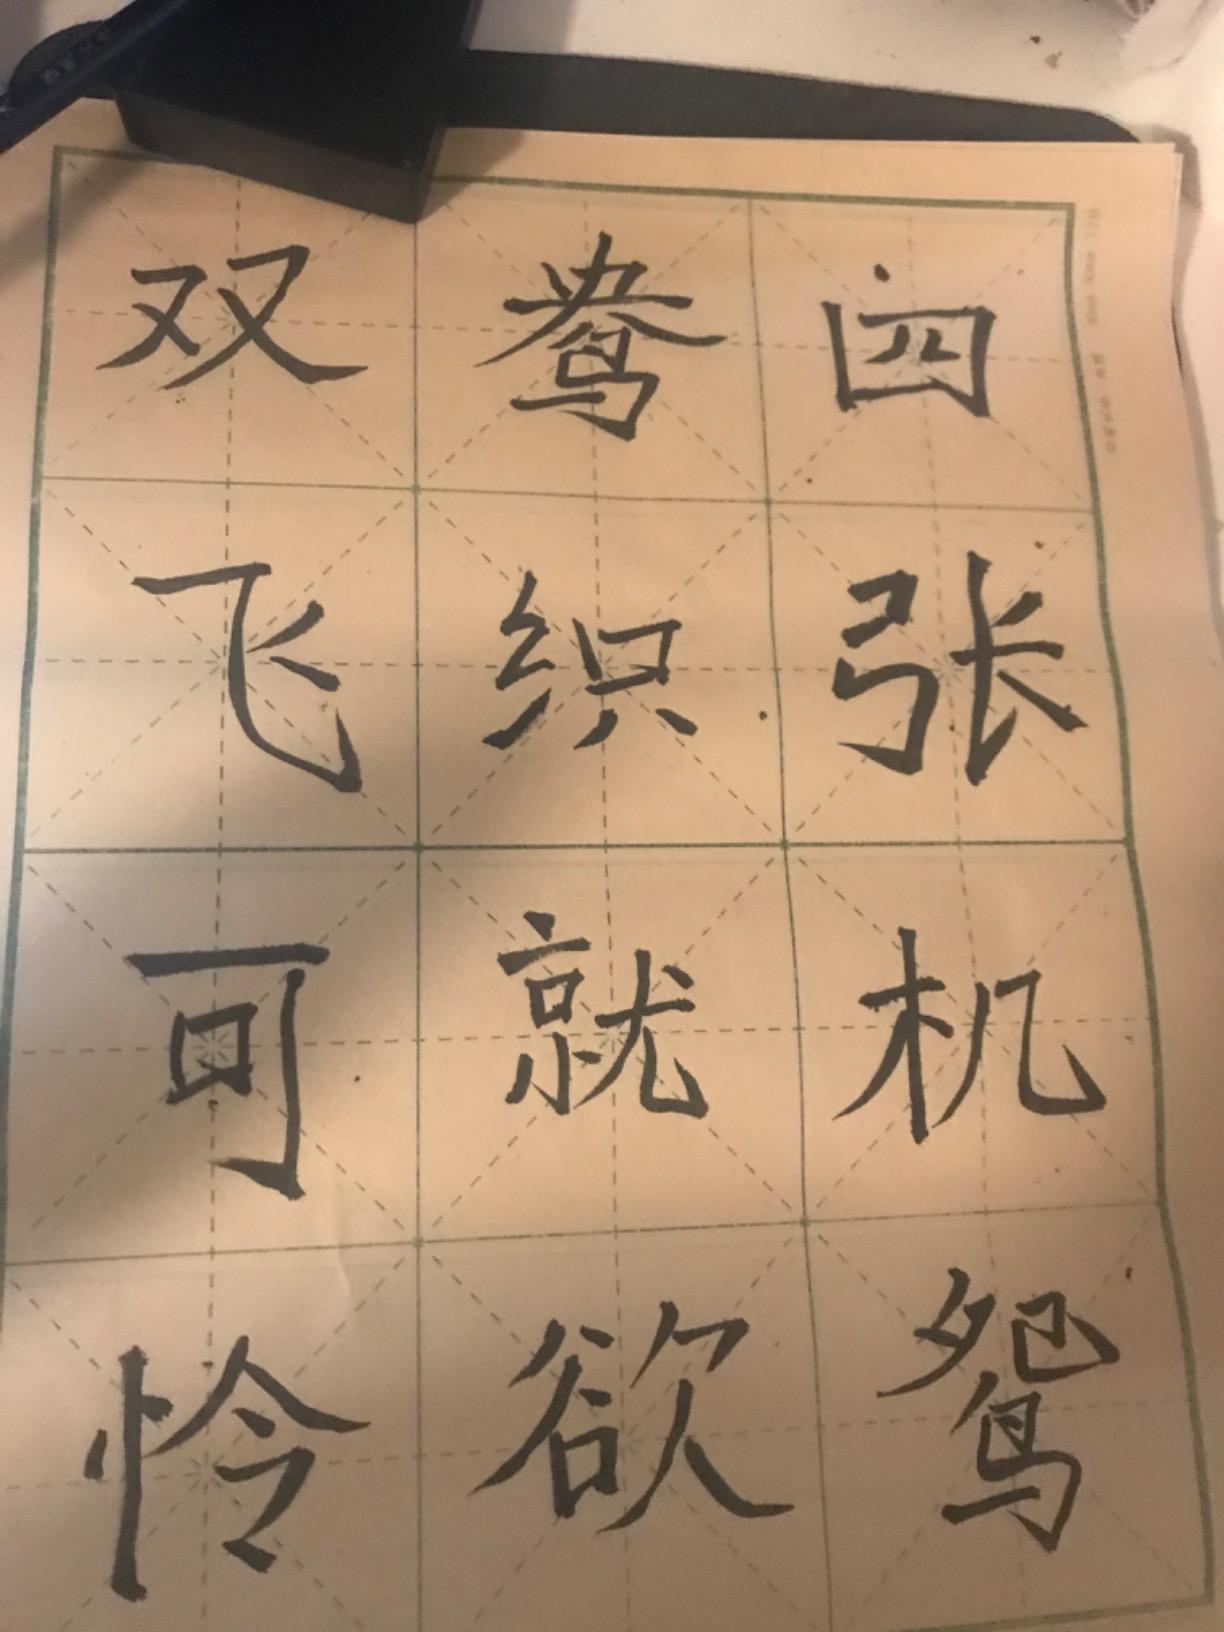 四张机鸳
鸯织就欲
双飞可怜